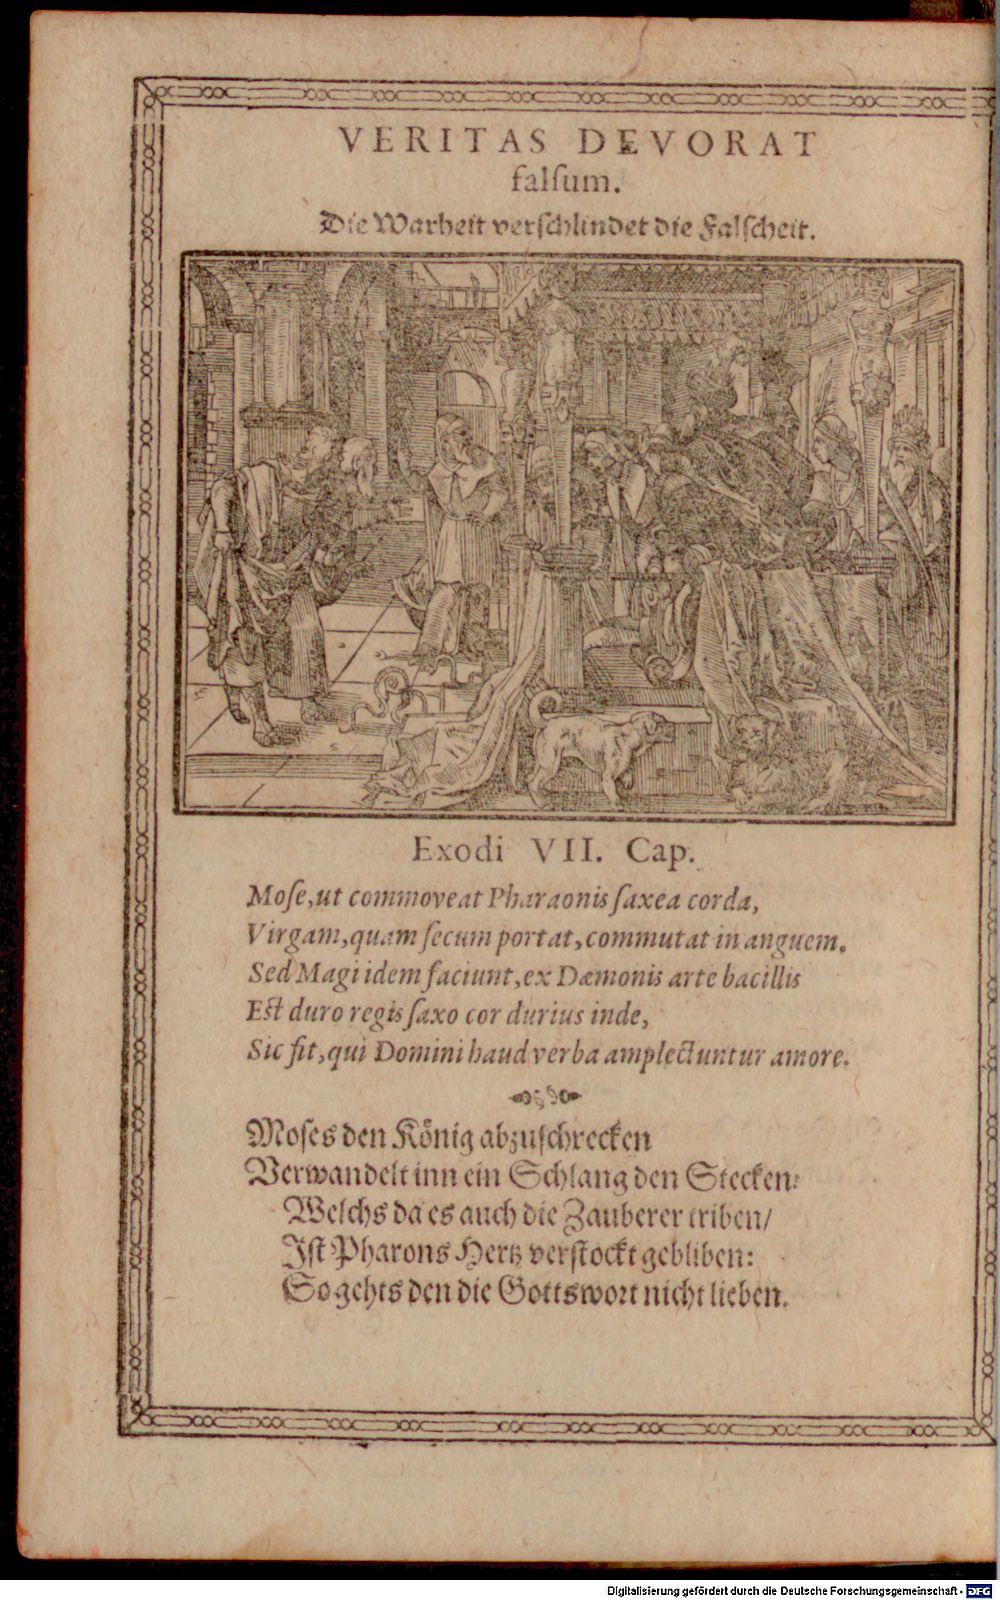 VERITAS DEVORAT
falſum.
Die Warheit verſchlindet die Falſcheit.
Exodi VII. Cap.
Moſe, ut commoveat Pharaonis ſaxea corda,
Virgam, quam ſecum portat, commutat in anguem.
Sed Magi idem faciunt, ex Dæmonis arte bacillis
Eſt duro regis ſaxo cor durius inde,
Sic fit, qui Domini haud verba amplectuntur amore.
Moſes den König abzuſchrecken
Verwandelt inn ein Schlang den Stecken:
Welchs da es auch die Zauberer triben/
Iſt Pharons Hertz verſtockt gebliben:
So gehts den die Gottswort nicht lieben.
Digitalisierung gefördert durch die Deutsche Forschungsgemeinschaft - DFG